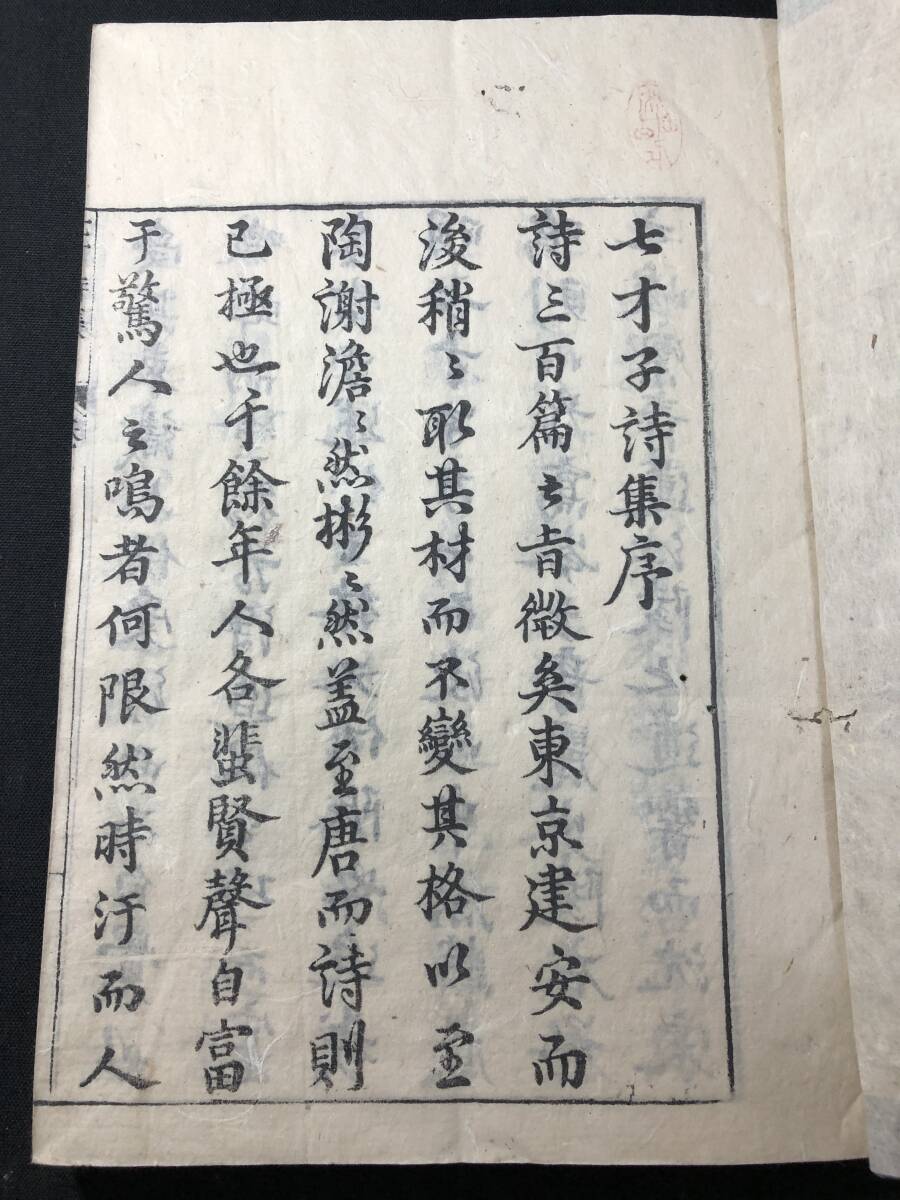 七才子詩集序
詩三百篇之旨微矣東京建安而
後稍〻取其材而不變其格以至
陶謝澹〻然彬〻然蓋至唐而詩則
已極也千餘年人各蜚賢聲自富
于驚人之鳴者何限然時汙而人